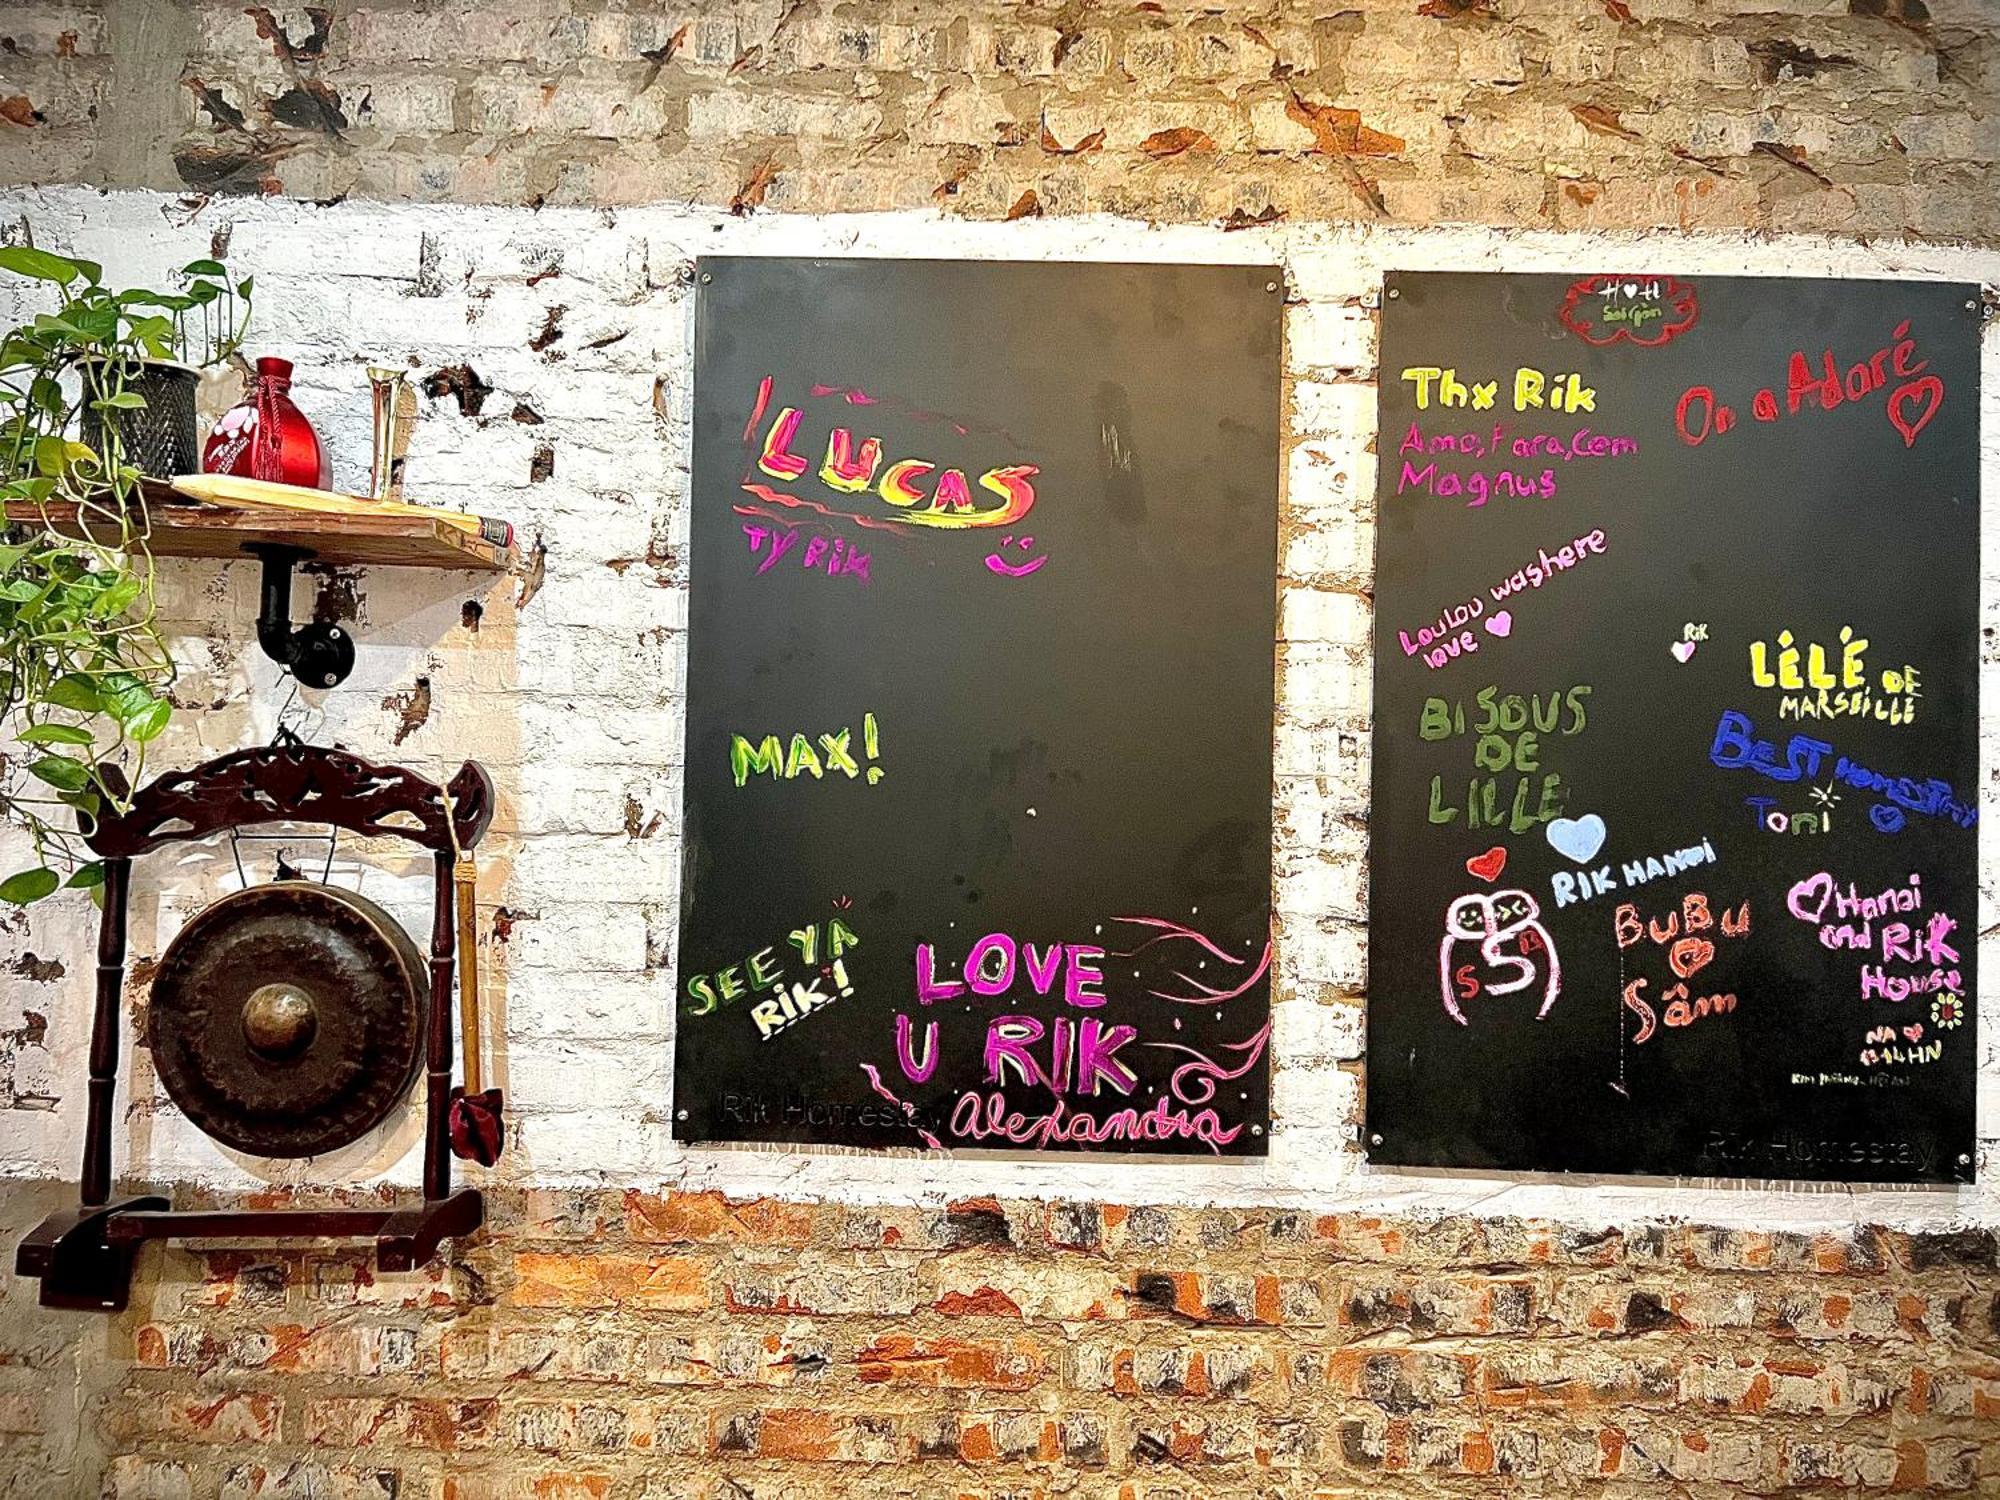 LUCAS
TY Rik
MAX!
SEE YA
RiK!
LOVE
U RIK
Alexandra
Rik Homestay
H♥H
Sai Gon
Thx Rik
Magnus
On a Adoré
Loulou was here
love
Rik
LÉLÉ DE
MARSEILLE
BEST HOMESTAY
Toni
BISOUS
DE
LILLE
RIK HANOI
S S
BuBu
Sâm
Hanoi
and RiK
House
Rik Homestay